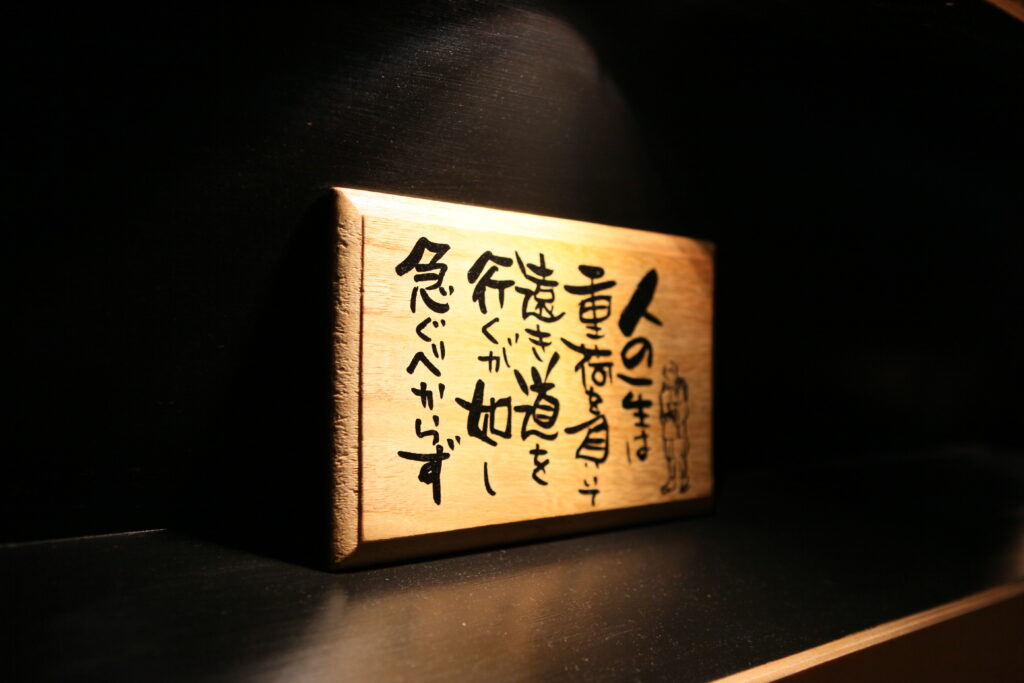 人の一生は
重荷を負いて
遠き道を
行くが如し
急ぐべからず